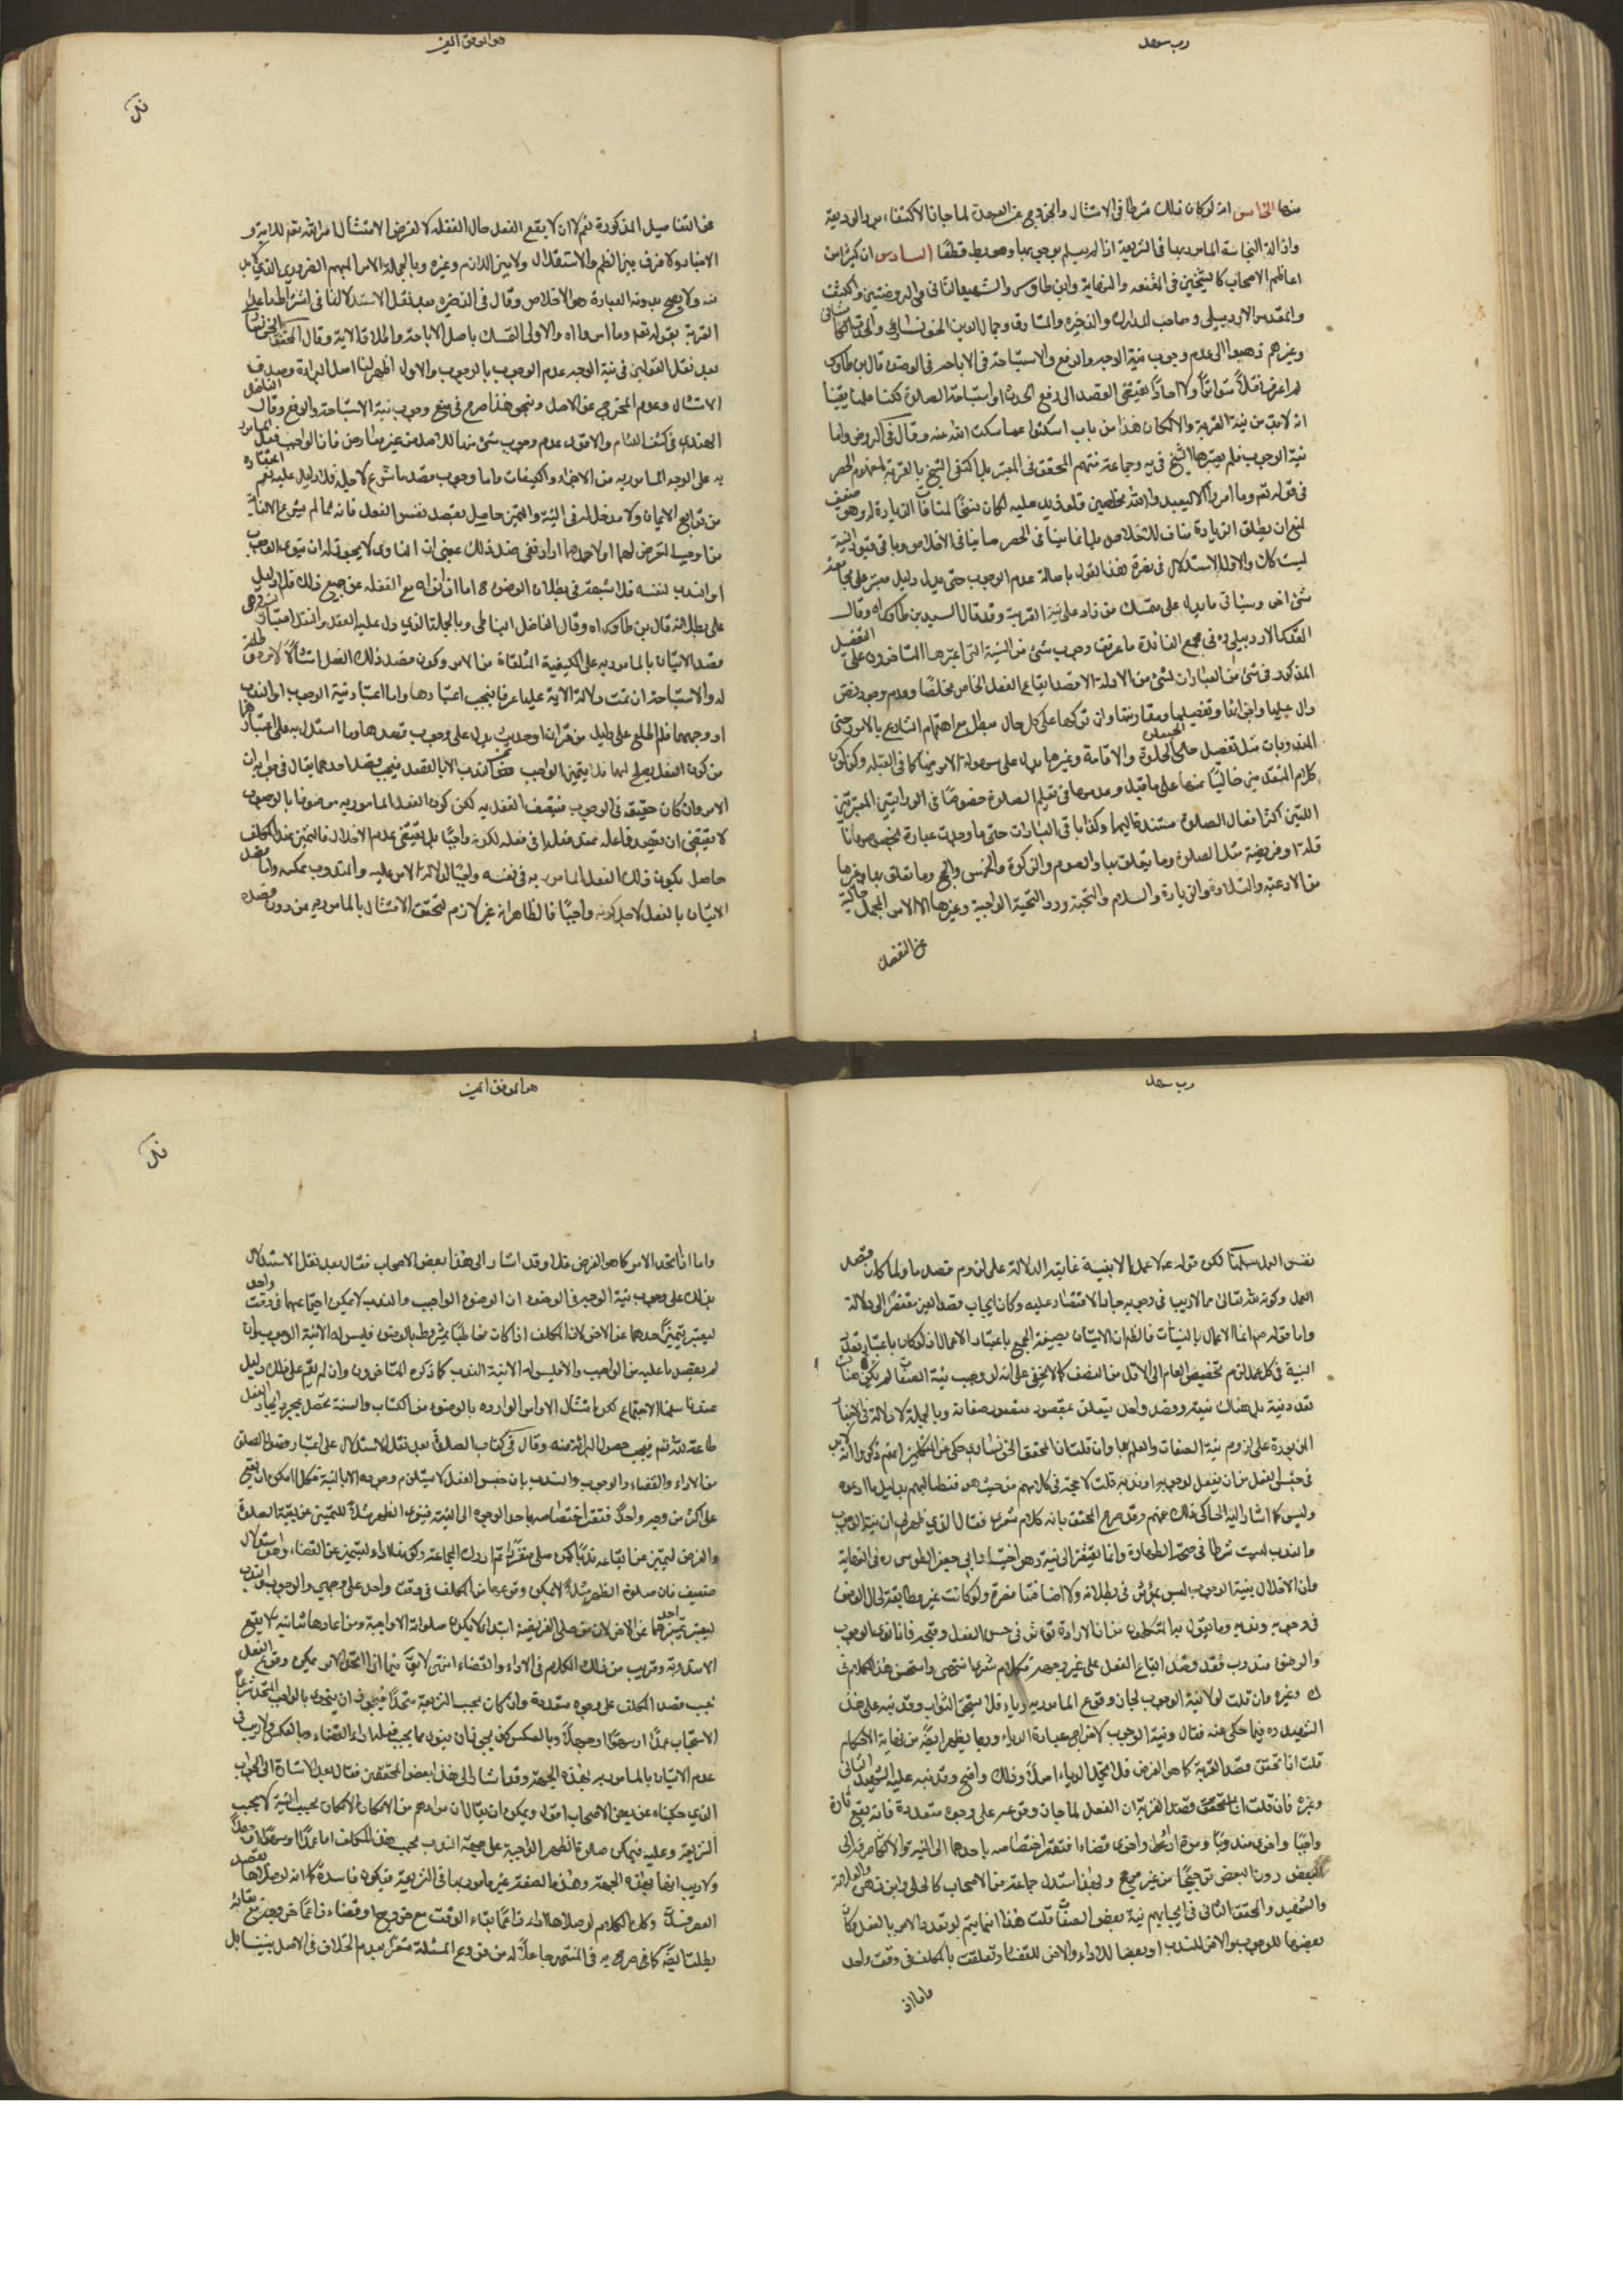 رب سهل
منها الخامس انه لو كان ذلك شرطا فى الامتثال والخروج عن العهدة لما جاز الاكتفاء برد الوديعة
وازالة النجاسة المامور بها فى الشريعة اذا لم يعلم بوجوبها وهو بط قطعًا السادس ان كثيرا من
اعاظم الاصحاب كالشيخين فى المقنعه والنهاية وابن طاوس والشهيد الثانى فى الروضتين والكشف
والمقدس الاردبيلى وصاحب المدارك والذخيره والمشارق وجمال الدين الخونسارى والمحدث الكاشانى
وغيرهم ذهبوا الى عدم وجوب نية الوجه والرفع والاستباحة فى الوضوء قال بن طاوس
لم اعرف نقلًا متواترًا ولا احادًا يقتضى القصد الى رفع الحدث او استباحة الصلوة لكننا علمنا يقينا
انه لابد من نية القربة والا لكان هذا من باب اسكتوا عما سكت الله عنه وقال فى الروض واما
نية الوجوب فلم يعتبرها الشيخ فى يه وجماعة منهم المحقق فى المعتبر بل اكتفى الشيخ بالقربة لمفهوم الحصر
فى قوله تعم وما امروا الا ليعبدوا الله مخلصين فلو زيد عليه لكان نسخًا لمنافات الزيادة له وهو ضعيف
لمنع ان مطلق الزيادة مناف للاخلاص بل انما ينافى الحصر ما ينافى الاخلاص وباقى قيود النية
ليست كك والاولى الاستدلال فى نصرة هذا القول باصالة عدم الوجوب حتى يدل دليل معتبر على مجامعة
شئ اخر وسياتى ما يدل على تمسك من زاد على نية القربة وقد قال السيد بن طاوس اه وقال
المقدس الاردبيلى ره فى مجمع الفائدة ما عرفت وجوب شئ من النية التى اعتبرها المتاخرون على التفصيل
المذكور فى شئ من العبارات لشئ من الادلة الا قصد ايقاع الفعل الخاص مخلصًا وعدم وجود نص
دال عليها واجزائها وتفصيلها ومقارنتها وان تركها على كل حال مبطل مع اهتمام الشارع بالامور حتى
المندوبات مثل تفصيل الخلوة والاقامة وغيرها يدل على سهولة الامر فيها كما فى القبلة وكذا كون
كلام المتقدمين خاليًا عنها على ما قيل وعدمها فى تعليم الصلوة خصوصًا فى الروايتين المعتبرتين
اللتين اكثر افعال الصلوة مستندة اليهما وكذا باقى العبارات حتى ما وجدت عبارة بخصوصها
من الادعية والتلاوة والزيارة والسلام والتحية ورد التحية الواجبة وغيرها الا الامر المجمل خالية
عن التفصيل
هو الموفق المعين
عن التفاصيل المذكورة نعم لا ان لا يقع الفعل حال الغفلة لا لغرض الامتثال لامر الله تعم للدلايل و
الاخبار ولا فرق بين النظم والاستقلال ولا بين الدائم وغيره وبالجملة الامر المهم الضرورى الذى لابد
منه ولا يصح بدونه العبادة هو الاخلاص وقال فى الذخيره بعد نقل الاستدلال فى اشتراط ما عدا
القربة بقوله تعم وما امروا اه والاولى التمسك باصل الاباحة واطلاق الاية وقال المحقق الخونسارى
بعد نقل القولين فى نية الوجه عدم الوجوب بالوجوب والاول اظهر لنا اصل البراءة وصدق
الامتثال وعدم المخرج عن الاصل وبنحو هذا صرح فى دفع وجوب نية الاستباحة والرفع وقال الفاضل
الهندى فى كشف اللثام والاقوى عدم وجوب شئ منها للاصل من غير معارض فان الواجب فعل المامور
به على الوجه المامور به من الاجزاء والكيفيات واما وجوب قصد ما شرع لاجله فلا دليل عليه نعم
من توابع الايمان ولا مدخل له فى النية والتميز حاصل بقصد نفس الفعل فانه مما لم يشرع الا لغاية
على بطلانه قال بن طاوس اه وقال الفاضل النباطى وبالجملة الذى دل عليه العقل والنقل اعتبار
قصد الاتيان بالمامور به على الكيفية المتلقاة من الامر وكون قصد ذلك الفعل امتثالًا لامره
له والاستباحة ان تمت دلالة الاية عليها عرفا فيجب اعتبارها واما اعتبار نية الوجوب او الندب
او وجههما فلم اطلع على دليل من قرآن او حديث يدل على وجوب قصدها وما استدل به على اعتبار
الامر وان كان حقيقة فى الوجوب فيتصف الفعل به لكن كون الفعل المامور به موصوفا بالوجوب
لا يقتضى ان يقصد فاعله عند فعله او فى فعله لكونه واجبًا بل يقتضى عدم الاخلال فالتميز عند المكلف
حاصل بكون ذلك الفعل المامور به فى نفسه واجبًا لدلالة الامر عليه والمندوب بمكسه واما قصد
الاتيان بالفعل لاجل كونه واجبًا فالظاهر انه غير لازم لتحقق الامتثال بالمامور به من دون قصده
رب سهل
نفس العمل سلمنا لكن قوله عم لا عمل الا بنية غايته الدلالة على لزوم قصد ما ولما كان قصد
العمل وكونه لله تعالى مما لا ريب فى وجوبه جاز الاقتصار عليه وكان ايجاب قصد امر مفتقرًا الى دلالة
واما قوله ص انما الاعمال بالنيات فالظ ان الاتيان بصيغة الجمع باعتبار الاعمال اذ لو كان باعتبار تعدد
النية فى كل عمل لزم تخصيص العام الى الاقل من النصف كما لا يخفى على انه لو وجب نية الصفات لم تكن هنا
تعدد نية بل هناك نية وقصد واحد يتعلق بمقصود متعدد صفاته وبالجملة لا دلالة فى الاخبار
المزبورة على لزوم نية الصفات والعلم بها وان قلت ان المحقق الخونسارى حكى عن المتكلمين انهم ذكروا انه لابد
فى حسن الفعل من ان يفعل لوجوبه او ندبه قلت لا حجة فى كلامهم من حيث هو فنطالبهم بدليل ما ادعوه
وليس كما اشار اليه الحاكى ذلك عنهم وقد صرح المحقق بانه كلام شعرى فقال الذى ظهر لى ان نية الوجوب
والندب ليست شرطا فى صحة الطهارة وانما يفتقر الى نية القربة وهو اختيار ابى جعفر الطوسى ره فى النهاية
وان الاخلال بنية الوجوب ليس بمؤثر فى بطلانه ولا اضافتها مضرة ولو كانت غير مطابقة لحال الوضوء
فى وجوبه وندبه وما يقول به المتكلمون من ان الارادة تؤثر فى حسن الفعل وقبحه فاذا نوى الوجوب
والوضوء مندوب فقد قصد ايقاع الفعل على غير وجهه كلام شعرى انتهى واستحسن هذا الكلام فى
ك وغيره فان قلت لولا نية الوجوب لجاز وقوع المامور به رياء فلا يستحق الثواب وقد نبه على هذا
الشهيد ره فيما حكى عنه فقال ونية الوجوب لاخراج عبادة الرياء وربما يظهر ايضًا من نهاية الاحكام
قلت اذا تحقق قصد القربة كما هو الغرض فلا تخيل الرياء اصلًا وذلك واضح وقد نبه عليه الشهيد الثانى
وغيره فان قلت اذا تحقق قصد القربة ان الفعل لما جاز وقوعه على وجوه متعددة فانه يقع تارة
واجبًا واخرى مندوبًا ومرة اداء واخرى قضاء افتقر اختصاصه باحدها الى النية والا لكان صرفه الى
البعض دون البعض ترجيحًا من غير مرجح وبهذا استدل جماعة من الاصحاب كالحلى وابن زهره والعلامة
والشهيد والمحقق الثانى فى ايجابهم نية بعض الصفات قلت هذا انما يتم لو تعدد الامر بالفعل كان
بعضها للوجوب والاخر للندب او بعضها للاداء والاخر للقضاء وتعلقت بالمكلف فى وقت واحد
واما اذا
هو الموفق المعين
واما اذا اتحد الامر كما هو الغرض فلا وقد اشار الى هذا بعض الاصحاب فقال بعد نقل الاستدلال
بذلك على وجوب نية الوجه فى الوضوء ان الوضوء الواجب والندب لا يمكن اجتماعهما فى وقت واحد
ليعتبر تميز احدهما عن الاخر لان المكلف اذا كان مخاطبًا بمشروط بالوضوء فليس له الا نية الوجوب وان
لم يقصد ما عليه من الواجب والا فليس له الا نية الندب كما ذكره المتاخرون وان لم يقم على ذلك دليل
عندنا سلمنا الاجتماع لكن امتثال الاوامر الوارده بالوضوء من الكتاب والسنة تحصل بمجرد ايجاد الفعل
طاعة لله تعم فيجب حصول البرائة منه وقال فى كتاب الصلوة بعد نقل الاستدلال على اعتبار حضور الصلوة
من الاداء والقضاء والوجوب والندب بان جنس الفعل لا يستلزم وجوهه الا بالنية فكلما امكن ان يقع
على اكثر من وجه واحد افتقر اختصاصه باحد الوجوه الى النية فينوى الظهر مثلًا للتميز عن بقية الصلوة
والفرض ليتميز عن ايقاعه ندبًا كمن صلى منفردًا ثم ادرك الجماعة وكونها اداء ليتميز عن القضاء وهو استدلال
ضعيف فان صلوة الظهر مثلًا لا يمكن وقوعها من المكلف فى وقت واحد على وجهى الوجوب والندب
ليعتبر تميز احدهما عن الاخر لان من صلى الفريضة ابتداء لا يكون صلوته الا واجبة ومن اعادها ثانية لا يقع
الا مندوبة وقريب من ذلك الكلام فى الاداء والقضاء انتهى لا يقال فيما اذا اتحد الامر يمكن وقوع الفعل
بحسب قصد المكلف على وجوه متعددة وان كان بحسب الشريعة متحدًا فيجوز ان ينوى بالواجب المتحد شرعًا
الاستحباب عمدًا او سهوًا او جهلًا وبالعكس وكذا يجوز ان ينوى بما يجب فعله اداء القضاء وبالعكس ولا ريب فى
عدم الاتيان بالمامور به بهذه الجهة وقد اشار الى هذا بعض المحققين فقال بعد الاشارة الى الجواب
الذى حكيناه عن بعض الاصحاب اقول ويمكن ان يقال ان مرادهم من الامكان الامكان بحسب النية لا بحسب
الشريعة وعليه فيمكن صلوة الظهر الواجبة على جهة الندب بحسب قصد المكلف اما عمدًا او سهوًا او جهلًا
بطلت ايضًا كما فى صرح به فى المنتهى جاعلًا له من فروع المسئلة مشعرًا بعدم الخلاف فى الاصل بيننا بل